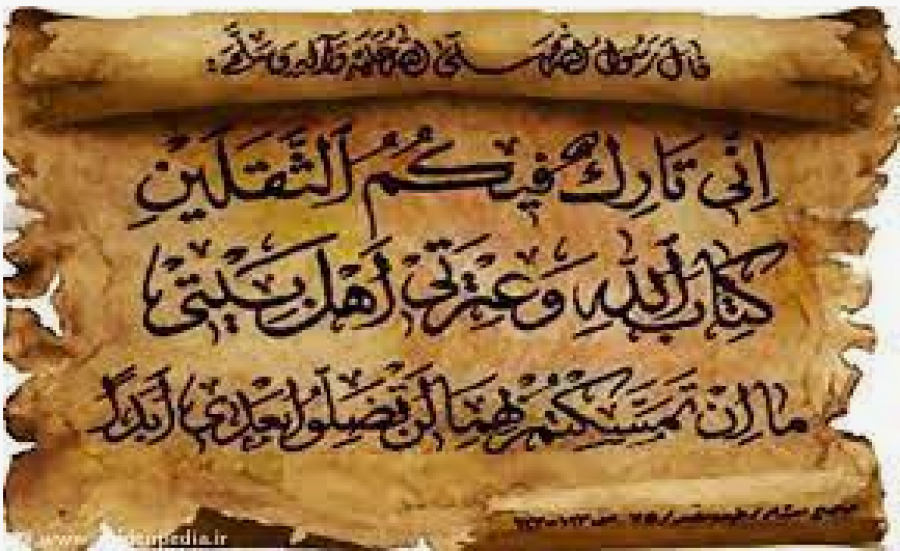 قال رسول الله صلى الله عليه وآله وسلم:
اِنّی تَارِكٌ فیكُمُ الثَّقَلَینِ
كِتَابَ اللهِ وَ عِتْرَتی اَهْلَ بَیْتی
ما اِنْ تَمَسَّكْتُمْ بِهِمَا لَنْ تَضِلّوُا بَعْدی اَبَدًا